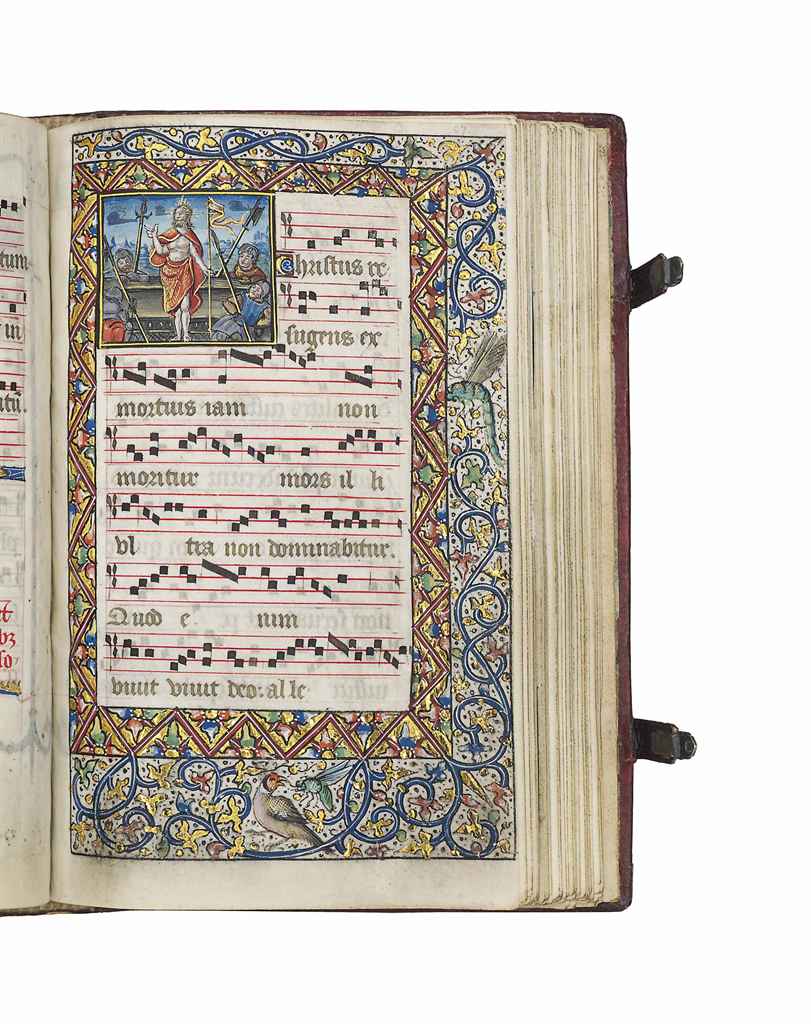 tum
in
Christus re
surgens ex
mortuis iam non
moritur mors il li
vl tra non dominabitur.
Quod e. nim
viuit viuit deo: al le